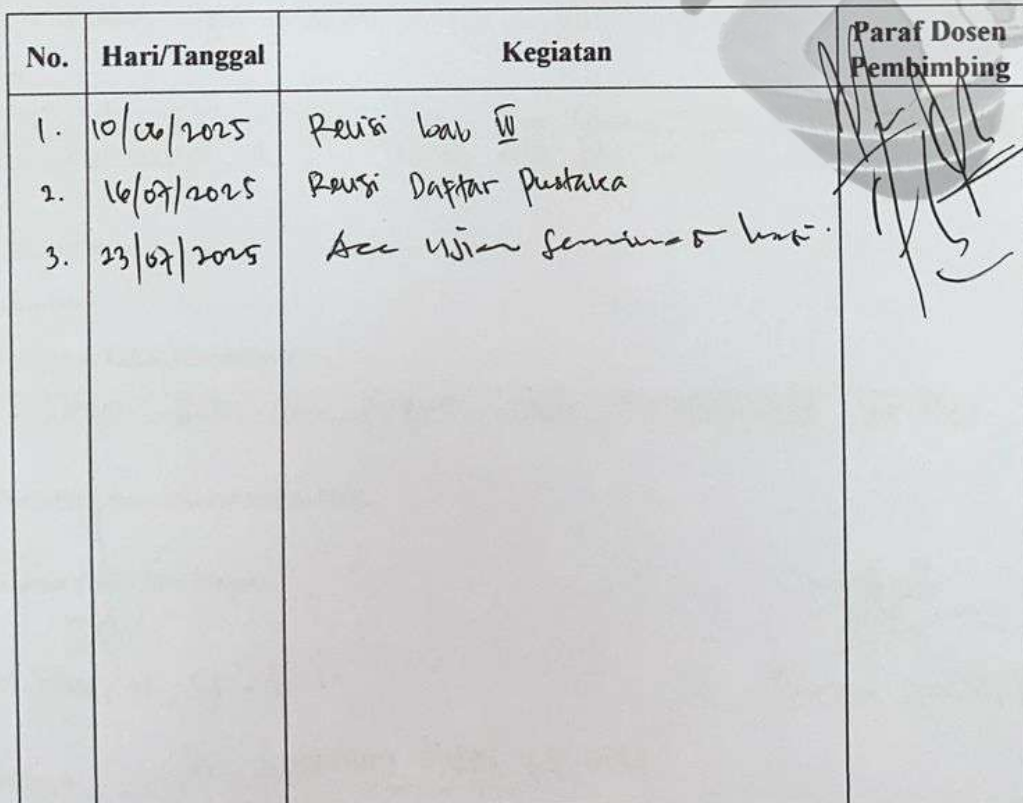 No. Hari/Tanggal Kegiatan Paraf Dosen Pembimbing
1. 10/06/2025 Revisi bab IV
2. 16/07/2025 Revisi Daftar Pustaka
3. 23/07/2025 Acc Ujian Seminar hasil.